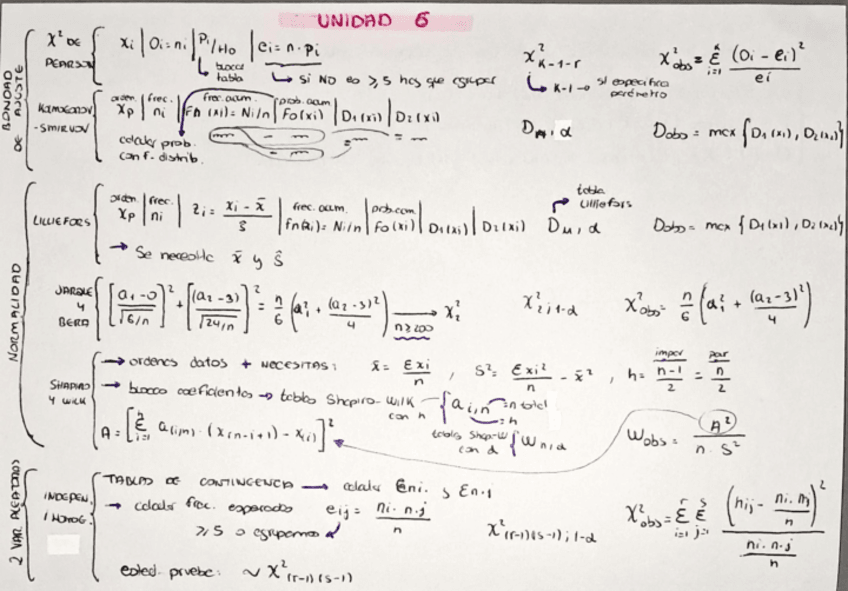 UNIDAD 6
BONDAD DE AJUSTE
χ² DE PEARSON
xi | Oi = ni | Pi/H0 | ei = n · pi
buscar tabla
si NO es ≥ 5 hay que agrupar
χ² k-1-r
k-1 → si especifica parámetro
χ²obs = Σ (i=1, k) (Oi - ei)² / ei
KOLMOGOROV - SMIRNOV
orden. xp | frec. ni | frec. acum. Fn(xi) = Ni/n | prob. acum F0(xi) | D1(xi) | D2(xi)
calcular prob. con f. distrib.
Dn, α
Dobs = max { D1(xi), D2(xi) }
NORMALIDAD
LILLIEFORS
orden. xp | frec. ni | zi = (xi - x̄) / ŝ | frec. acum. fn(zi) = Ni/n | prob. acum. F0(xi) | D1(xi) | D2(xi)
tabla Lilliefors
Dn, α
Dobs = max { D1(xi), D2(xi) }
→ Se necesita x̄ y ŝ
JARQUE Y BERA
[(a1 - 0) / √6/n]² + [(a2 - 3) / √24/n]² = n/6 (a1² + (a2 - 3)²/4) → n ≥ 200 χ²2
χ² 2; 1-α
χ²obs = n/6 (a1² + (a2 - 3)²/4)
SHAPIRO Y WILK
→ ordenas datos + NECESITAS: x̄ = Σxi / n , S² = Σxi² / n - x̄² , h = impar (n-1)/2 = par n/2
→ buscas coeficientes → tabla Shapiro-Wilk con n { ai,n = n total = h
A = [Σ (i=1, h) a(i,n) · (x(n-i+1) - x(i))]²
tabla Shap-W con α { Wn, α
Wobs = A² / n · S²
2 VAR.
INDEPEN. / HOMOG.
TABLAS DE CONTINGENCIA → calcular Σni· y Σn·j
→ calcular frec. esperadas eij = ni· n·j / n
≥ 5 o agrupamos
χ² (r-1)(s-1); 1-α
χ²obs = Σ (i=1, r) Σ (j=1, s) (nij - ni· n·j / n)² / (ni· n·j / n)
estad. prueba: ~ χ² (r-1)(s-1)